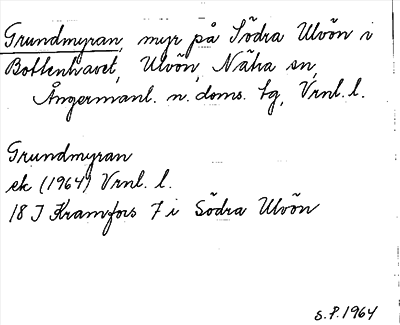 Grundmyran, myr på Södra Ulvön i
Bottenhavet, Ulvön, Nätra sn,
Ångermanl. n. doms. tg, Vrnl. l.
Grundmyran
ek (1964) Vrnl. l.
18 J Kramfors 7 i Södra Ulvön
S.P. 1964